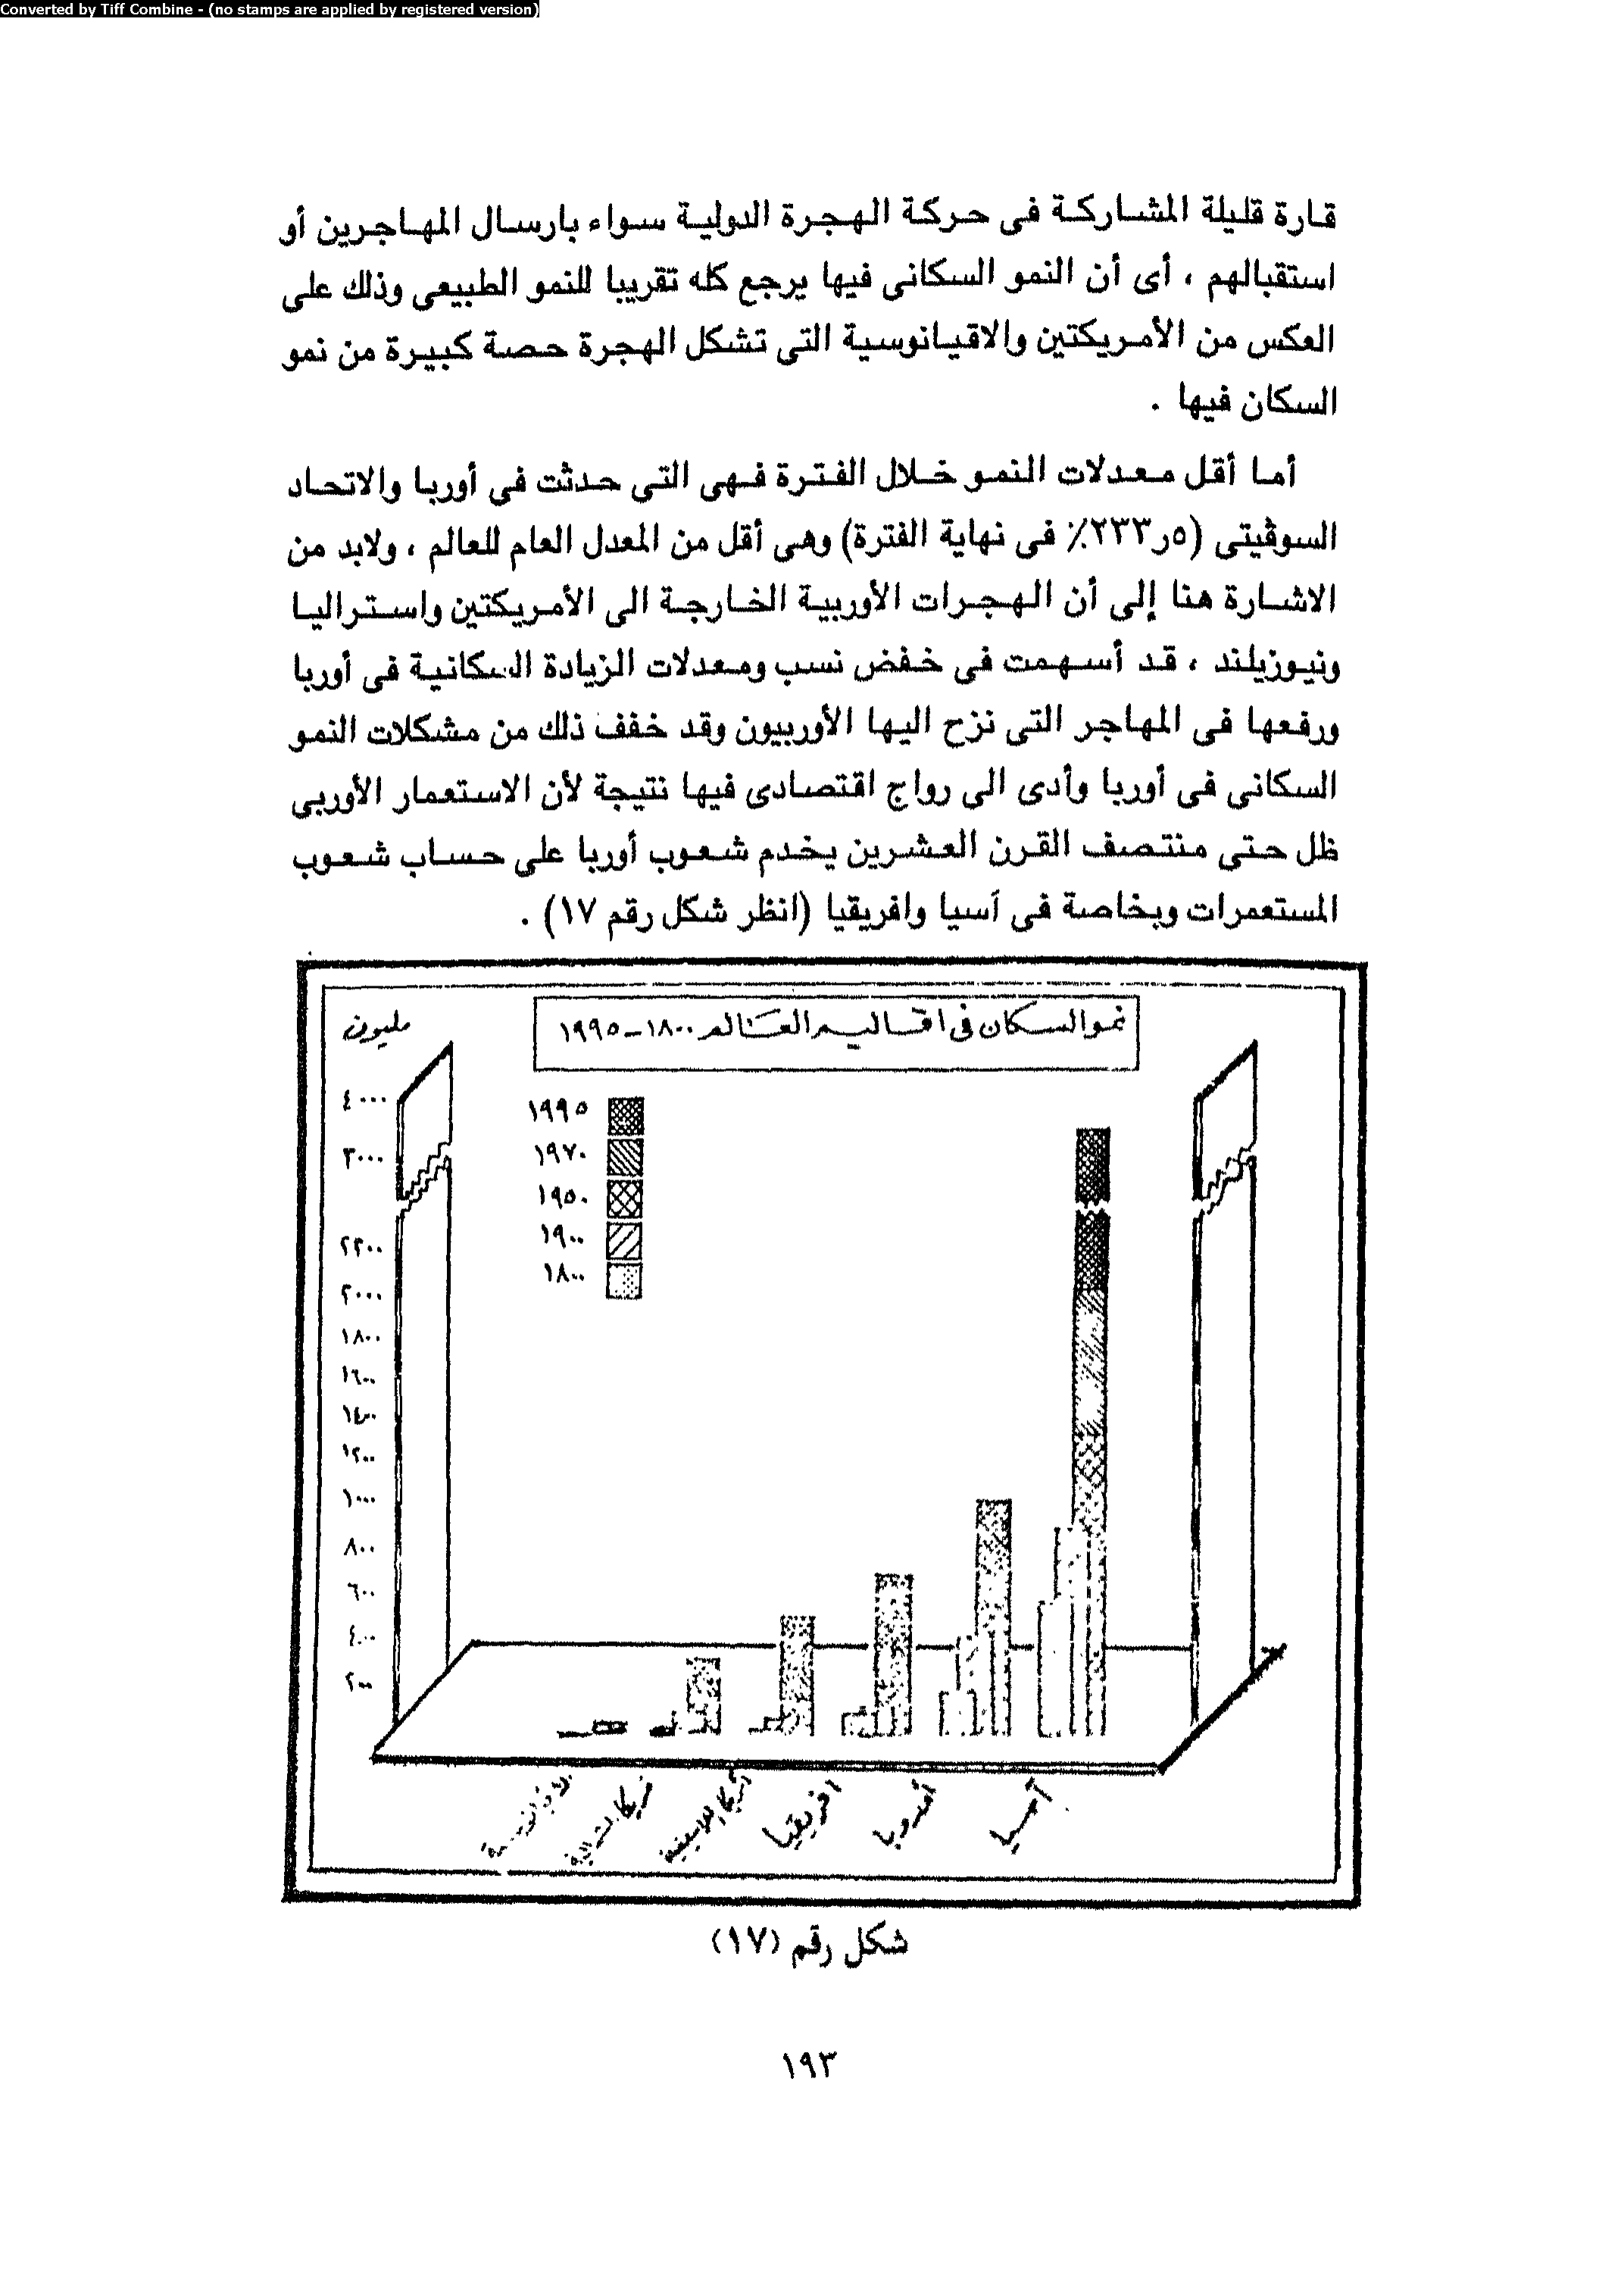 Converted by Tiff Combine - (no stamps are applied by registered version)
قارة قليلة المشاركة فى حركة الهجرة الدولية سواء بارسال المهاجرين أو
استقبالهم ، أى أن النمو السكانى فيها يرجع كله تقريبا للنمو الطبيعى وذلك على
العكس من الأمريكتين والاقيانوسية التى تشكل الهجرة حصة كبيرة من نمو
السكان فيها .
أما أقل معدلات النمو خلال الفترة فهى التى حدثت فى أوربا والاتحاد
السوڤيتى (٥ر٢٣٣٪ فى نهاية الفترة) وهى أقل من المعدل العام للعالم ، ولابد من
الاشارة هنا إلى أن الهجرات الأوربية الخارجة الى الأمريكتين واستراليا
ونيوزيلند ، قد أسهمت فى خفض نسب ومعدلات الزيادة السكانية فى أوربا
ورفعها فى المهاجر التى نزح اليها الأوربيون وقد خفف ذلك من مشكلات النمو
السكانى فى أوربا وأدى الى رواج اقتصادى فيها نتيجة لأن الاستعمار الأوربى
ظل حتى منتصف القرن العشرين يخدم شعوب أوربا على حساب شعوب
المستعمرات وبخاصة فى آسيا وافريقيا (انظر شكل رقم ١٧) .
نمو السكان فى اقاليم العالم ١٨٠٠-١٩٩٥
مليون
٤٠٠٠
٣٠٠٠
٢٢٠٠
٢٠٠٠
١٨٠٠
١٦٠٠
١٤٠٠
١٢٠٠
١٠٠٠
٨٠٠
٦٠٠
٤٠٠
٢٠٠
١٩٩٥
١٩٧٠
١٩٥٠
١٩٠٠
١٨٠٠
آسيا
أوروبا
افريقيا
أمريكا اللاتينية
شكل رقم (١٧)
١٩٣